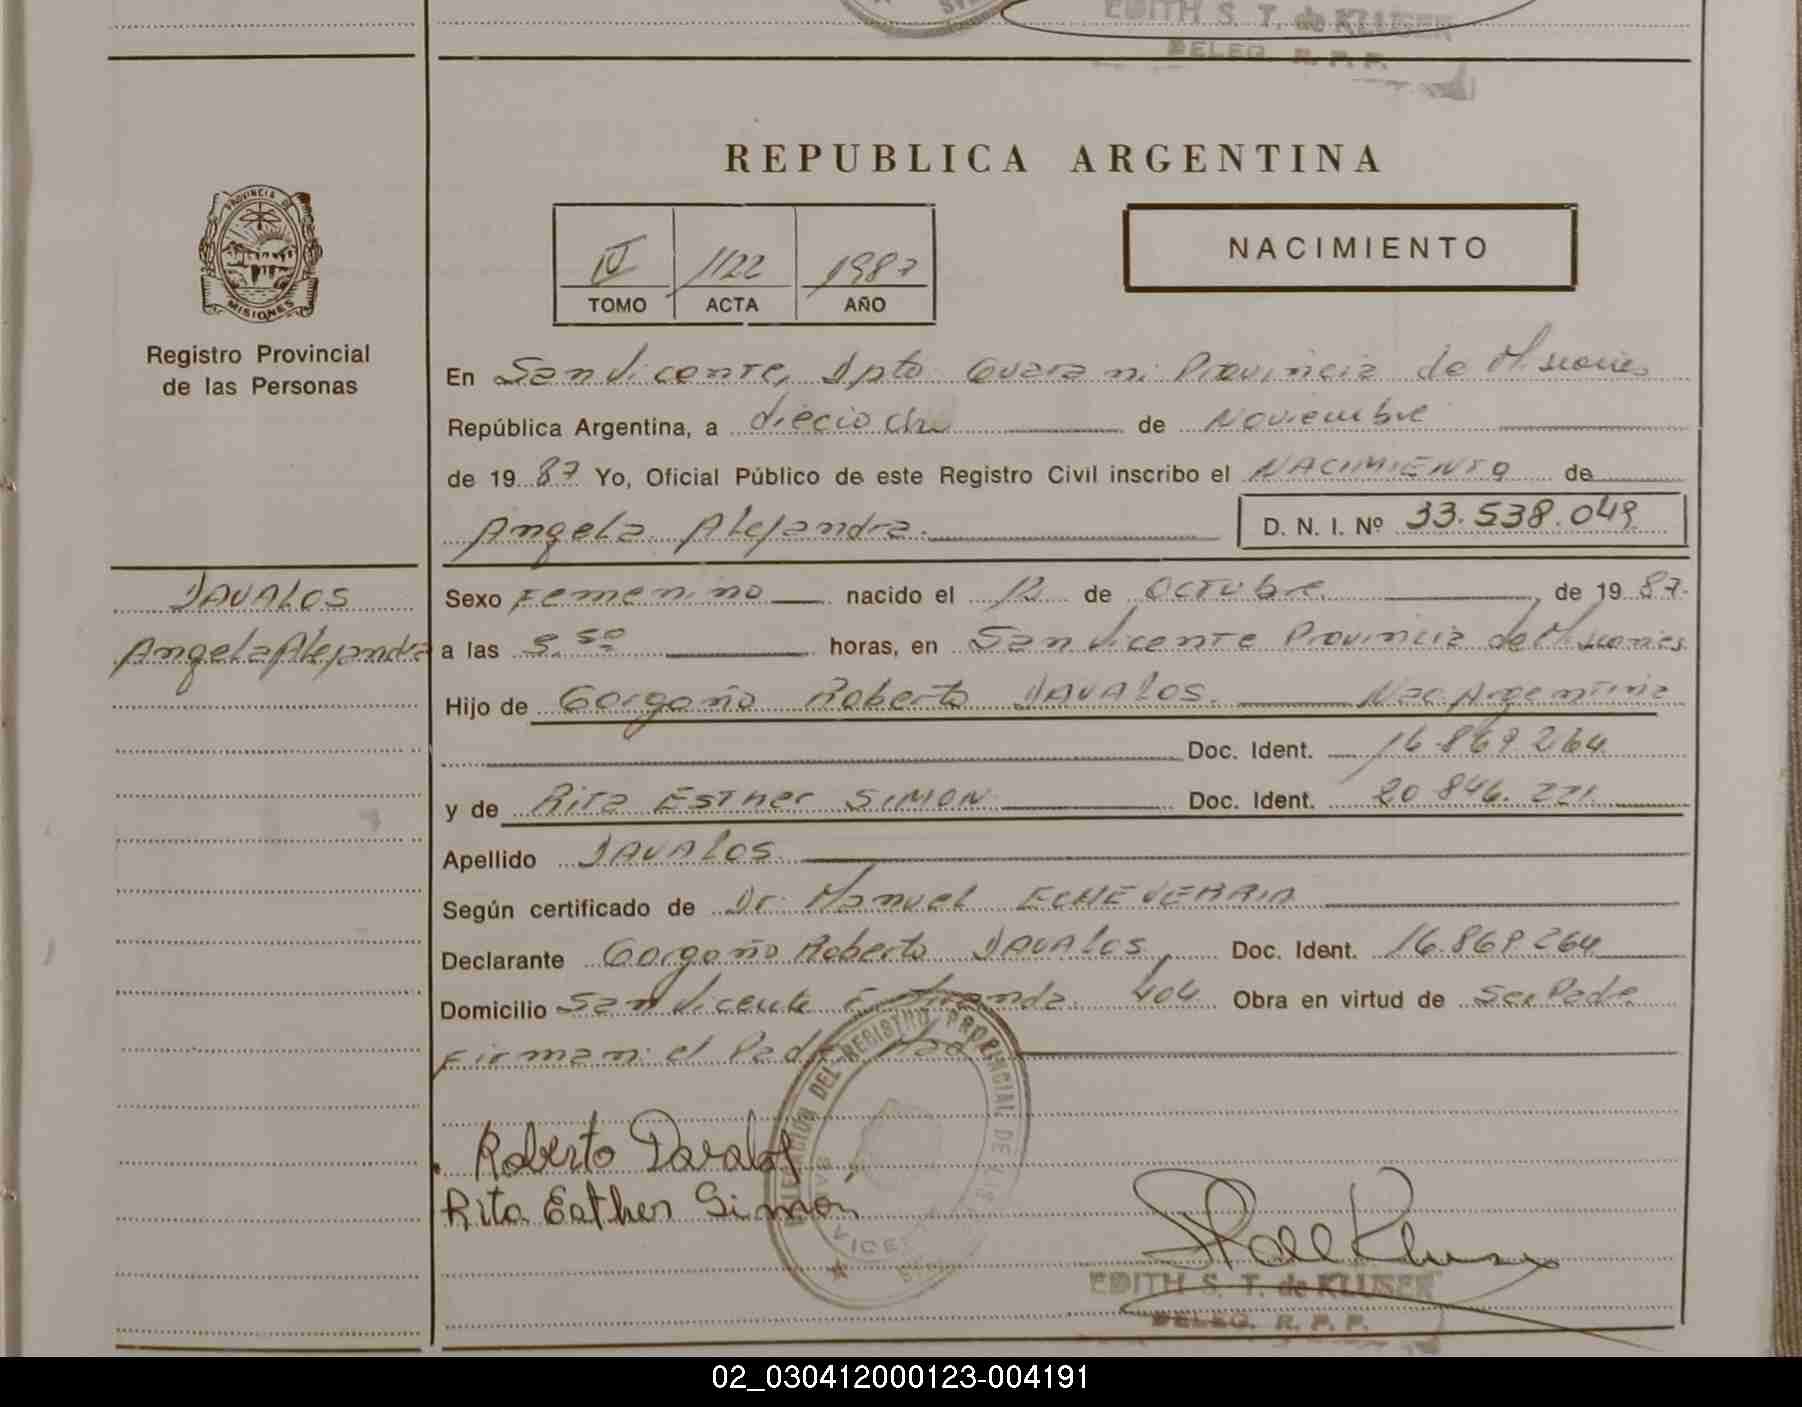 EDITH S. T. de KLUSER
DELEG. R. P. P.
REPUBLICA ARGENTINA
PROVINCIA DE
MISIONES
Registro Provincial
de las Personas
IV 1122 1987
TOMO ACTA AÑO
NACIMIENTO
En San Vicente, Dpto Guarani Provincia de Misiones
República Argentina, a dieciocho de Noviembre
de 1987 Yo, Oficial Público de este Registro Civil inscribo el NACIMIENTO de
Angela Alejandra. D. N. I. Nº 33.538.049
DAVALOS
Angela Alejandra
Sexo Femenino nacido el 12 de Octubre de 1987.
a las 5.50 horas, en San Vicente Provincia de Misiones
Hijo de Gorgoño Roberto DAVALOS. Nac. Argentina
Doc. Ident. 16.869.264
y de Rita Esther SIMON Doc. Ident. 20.846.221
Apellido DAVALOS
Según certificado de Dr. Manuel ECHEVERRIA
Declarante Gorgoño Roberto DAVALOS, Doc. Ident. 16.869.264
Domicilio San Vicente 404 Obra en virtud de Ser Padre
Firman: el Padre
DELEGACIÓN DEL REGISTRO PROVINCIAL DE LAS
Roberto Davalos
Rita Esther Simón
EDITH S. T. de KLUSER
DELEG. R. P. P.
02_030412000123-004191